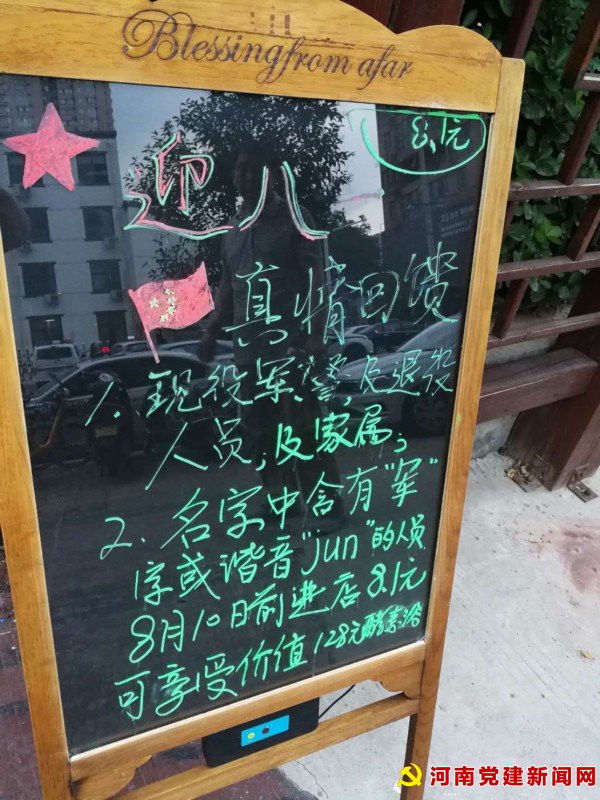 Blessing from afar
8.1元
迎八一
真情回馈
1. 现役军、警,及退役
人员,及家属;
2. 名字中含有“军”
字或谐音“jun”的人员
8月10日前进店8.1元
可享受价值128元酵素浴
河南党建新闻网